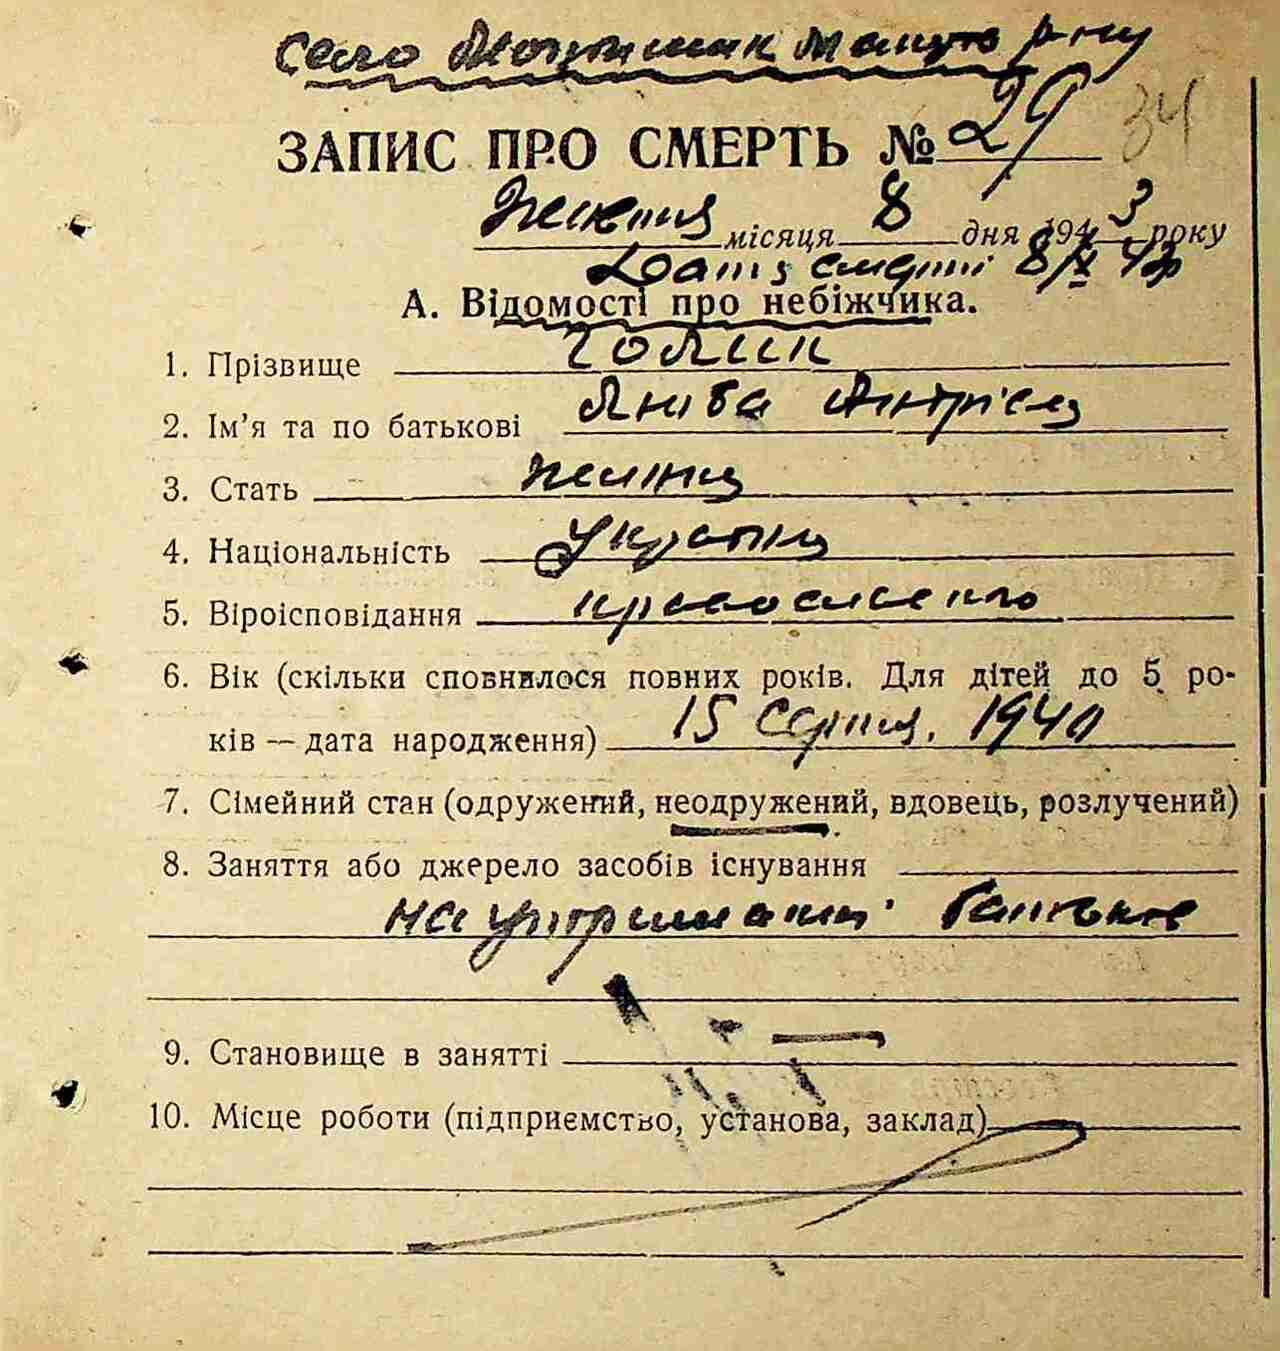 Село
ЗАПИС ПРО СМЕРТЬ № 29 34
Жовтня місяця 8 дня 1943 року
Дата смерті 8/X 43р
А. Відомості про небіжчика.
1. Прізвище
2. Ім'я та по батькові Люба
3. Стать жіноч
4. Національність Україн
5. Віроісповідання православно
6. Вік (скільки сповнилося повних років. Для дітей до 5 ро-
ків — дата народження) 15 Серпня. 1940
7. Сімейний стан (одружений, неодружений, вдовець, розлучений)
8. Заняття або джерело засобів існування
на утриманні батьків
9. Становище в занятті —
10. Місце роботи (підприємство, установа, заклад)